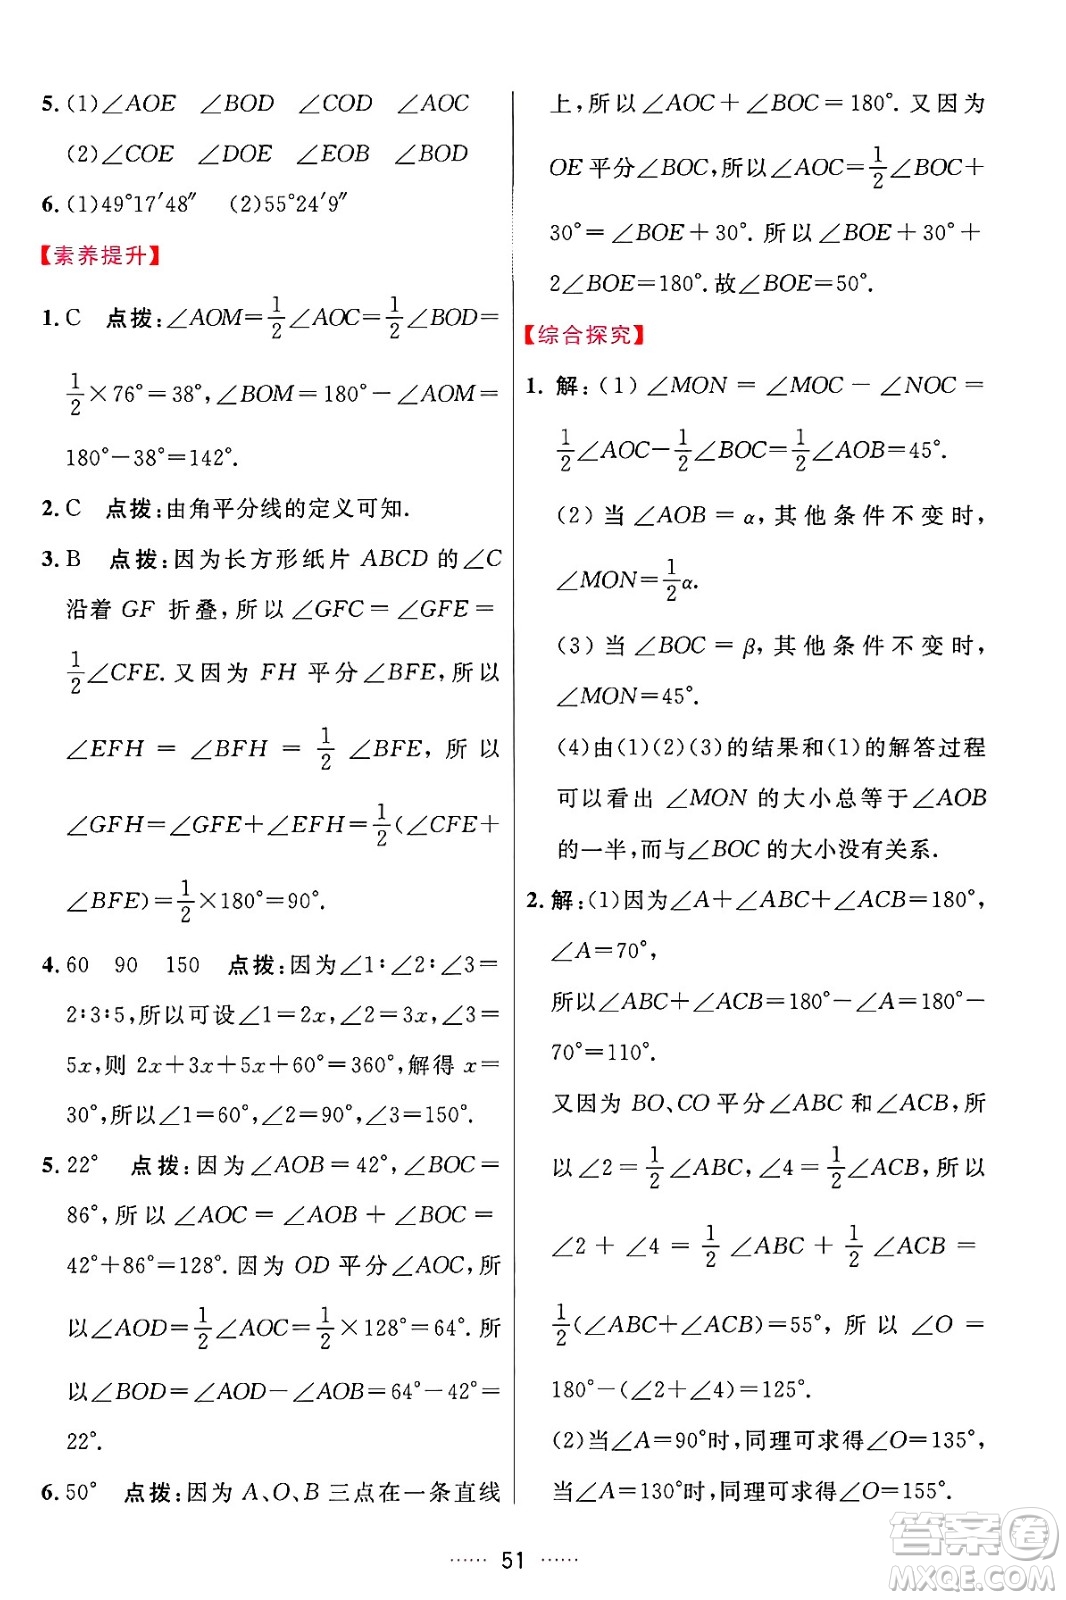 5. (1)∠AOE ∠BOD ∠COD ∠AOC
(2)∠COE ∠DOE ∠EOB ∠BOD
6. (1)49°17′48″ (2)55°24′9″
【素养提升】
1. C 点拨:∠AOM=1/2∠AOC=1/2∠BOD=
1/2×76°=38°,∠BOM=180°-∠AOM=
180°-38°=142°.
2. C 点拨:由角平分线的定义可知.
3. B 点拨:因为长方形纸片 ABCD 的∠C
沿着 GF 折叠,所以∠GFC=∠GFE=
1/2∠CFE.又因为 FH 平分∠BFE,所以
∠EFH=∠BFH=1/2∠BFE,所以
∠GFH=∠GFE+∠EFH=1/2(∠CFE+
∠BFE)=1/2×180°=90°.
4. 60 90 150 点拨:因为∠1∶∠2∶∠3=
2∶3∶5,所以可设∠1=2x,∠2=3x,∠3=
5x,则 2x+3x+5x+60°=360°,解得 x=
30°,所以∠1=60°,∠2=90°,∠3=150°.
5. 22° 点拨:因为∠AOB=42°,∠BOC=
86°,所以∠AOC=∠AOB+∠BOC=
42°+86°=128°.因为 OD 平分∠AOC,所
以∠AOD=1/2∠AOC=1/2×128°=64°.所
以∠BOD=∠AOD-∠AOB=64°-42°=
22°.
6. 50° 点拨:因为 A、O、B 三点在一条直线
上,所以∠AOC+∠BOC=180°.又因为
OE 平分∠BOC,所以∠AOC=1/2∠BOC+
30°=∠BOE+30°.所以∠BOE+30°+
2∠BOE=180°.故∠BOE=50°.
【综合探究】
1. 解:(1)∠MON=∠MOC-∠NOC=
1/2∠AOC-1/2∠BOC=1/2∠AOB=45°.
(2)当∠AOB=α,其他条件不变时,
∠MON=1/2α.
(3)当∠BOC=β,其他条件不变时,
∠MON=45°.
(4)由(1)(2)(3)的结果和(1)的解答过程
可以看出∠MON 的大小总等于∠AOB
的一半,而与∠BOC 的大小没有关系.
2. 解:(1)因为∠A+∠ABC+∠ACB=180°,
∠A=70°,
所以∠ABC+∠ACB=180°-∠A=180°-
70°=110°.
又因为 BO、CO 平分∠ABC 和∠ACB,所
以∠2=1/2∠ABC,∠4=1/2∠ACB,所以
∠2+∠4=1/2∠ABC+1/2∠ACB=
1/2(∠ABC+∠ACB)=55°,所以∠O=
180°-(∠2+∠4)=125°.
(2)当∠A=90°时,同理可求得∠O=135°,
当∠A=130°时,同理可求得∠O=155°.
51
答案圈
MXQE.COM